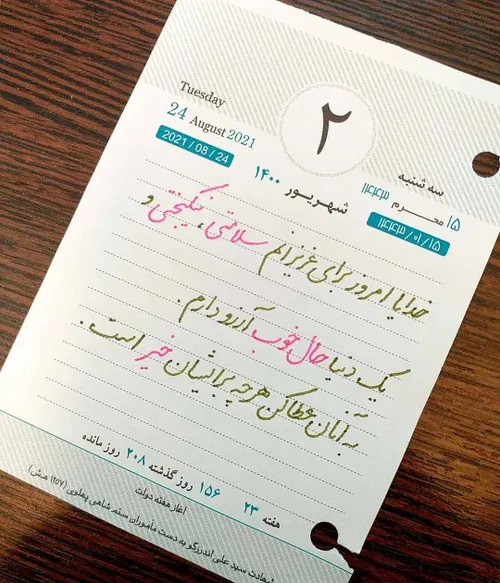 Tuesday
24 August 2021
2021 / 08 / 24
۲
سه شنبه
۱۵ محرم ۱۴۴۳
۱۴۴۳/۰۱/۱۵
شهریور ۱۴۰۰
خدایا امروز برای عزیزانم سلامتی، نیکبختی و
یک دنیا حال خوب آرزو دارم.
به آنان عطا کن هر چه برایشان خیر است.
هفته ۲۳ ۱۵۶ روز گذشته ۲۰۸ روز مانده
آغاز هفته دولت
شهادت سید علی اندرزگو به دست ماموران ستم شاهی پهلوی (۱۳۵۷ ه.ش)